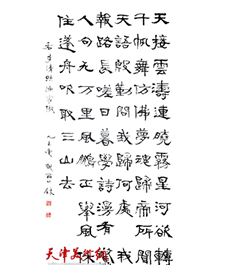 天接雲濤連曉霧星河欲轉
千帆舞仿佛夢魂歸帝所聞
天語殷勤問我歸何處我
報路長嗟日暮學詩謾有驚
人句九万里風鵬正舉風休
住蓬舟吹取三山去
李清照漁家傲
天津美術網